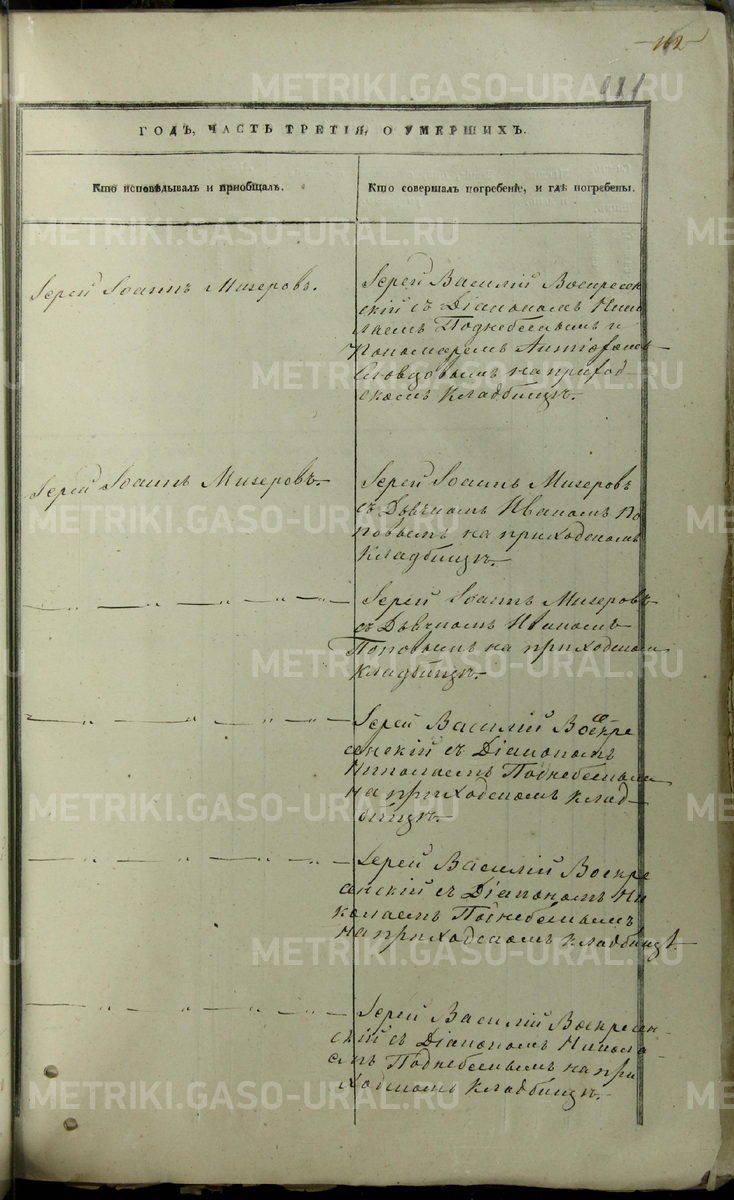 162
ГОДЪ, ЧАСТЬ ТРЕТІЯ, О УМЕРШИХЪ.
Кто исповѣдывалъ и пріобщалъ.
Кто совершалъ погребеніе, и гдѣ погребены.
Іерей Іоаннъ Мизеровъ.
Іерей Василій Воскресен
скій съ Діакономъ Нико
лаемъ Поднебеснымъ и
Пономаремъ
Словцовымъ на приход-
скомъ кладбищѣ.
Іерей Іоаннъ Мизеровъ.
Іерей Іоаннъ Мизеровъ
съ Дьячкомъ Иваномъ По
повымъ на приходскомъ
кладбищѣ.
— „ — „ — „ — „ —
Іерей Іоаннъ Мизеровъ
съ Дьячкомъ Иваномъ
Поповымъ на приходскомъ
кладбищѣ.
— „ — „ — „ — „ —
Іерей Василій Воскре
сенскій съ Діакономъ
Николаемъ Поднебеснымъ
на приходскомъ клад-
бищѣ.
— „ — „ — „ — „ —
Іерей Василій Воскре
сенскій съ Діакономъ Ни
колаемъ Поднебеснымъ
на приходскомъ кладбищѣ.
— „ — „ — „ — „ —
Іерей Василій Воскресен-
скій съ Діакономъ Никола
емъ Поднебеснымъ на при
ходскомъ кладбищѣ.
METRIKI.GASO-URAL.RU